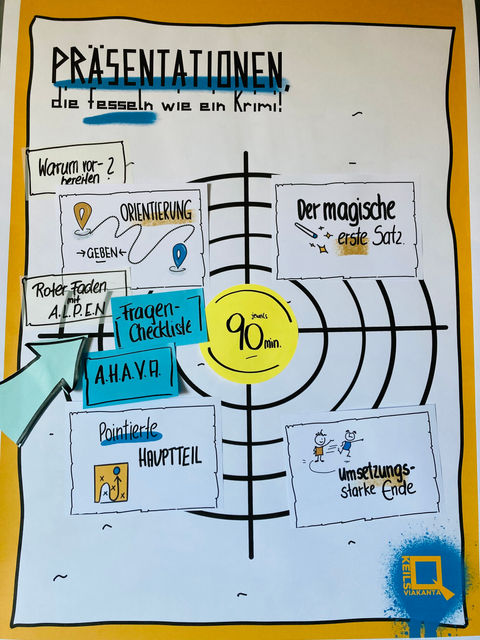 PRÄSENTATIONEN,
die fesseln wie ein Krimi!
Warum vor-
bereiten ?
ORIENTIERUNG
→GEBEN←
Der magische
erste Satz.
Roter Faden
mit
A.L.P.E.N
Fragen-
Checkliste
A.H.A.V.A.
jeweils
90 min.
Pointierte
HAUPTTEIL
Umsetzungs-
starke Ende
KEILS
VIAKANTA